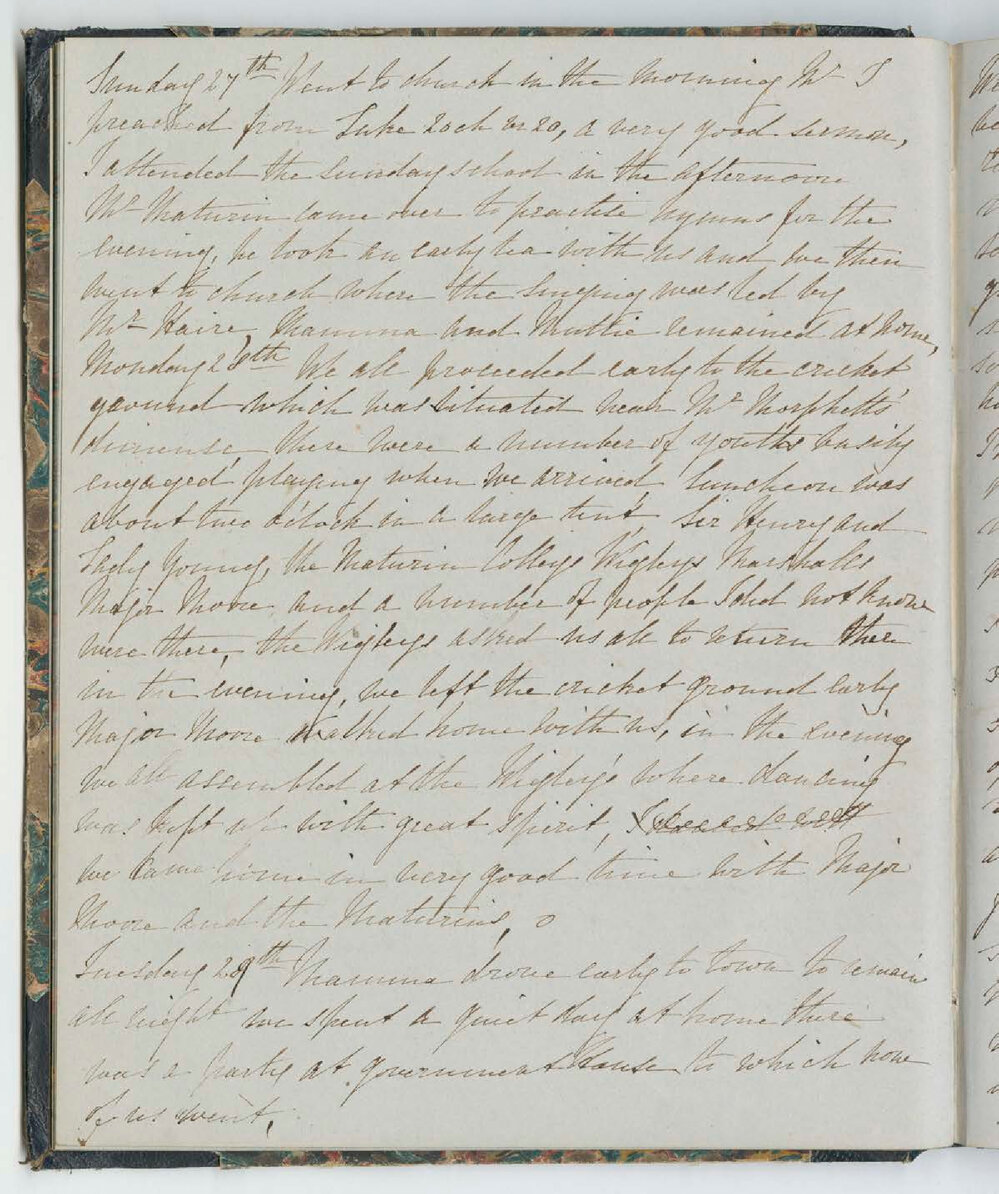 Sunday 27th Went to church in the morning Mr T
preached from Luke 20 ch vr 20, a very good sermon,
I attended the sunday school in the afternoon
Mr Maturin came over to practise hymns for the
evening, he took an early tea with us and we then
went to church where the singing was led by
Mr Haire, Mamma and Mattie remained at home,
Monday 28th We all proceeded early to the cricket
ground which was situated near Mr Morphett's
dimense, there were a number of youths busily
engaged playing when we arrived, luncheon was
about two o'clock in a large tent, Sir Henry and
Lady Young, the Maturin Colleys Wigleys Marshalls
Major Moore and a number of people I did not know
were there, the Wigleys asked us all to return there
in the evening, we left the cricket ground early
Major Moore walked home with us, in the evening
we all assembled at the Wigley's where dancing
was kept up with great spirit,
we came home in very good time with Major
Moore and the Maturins,
Tuesday 29th Mamma drove early to town to remain
all night we spent a quiet day at home there
was a party at government House to which none
of us went,